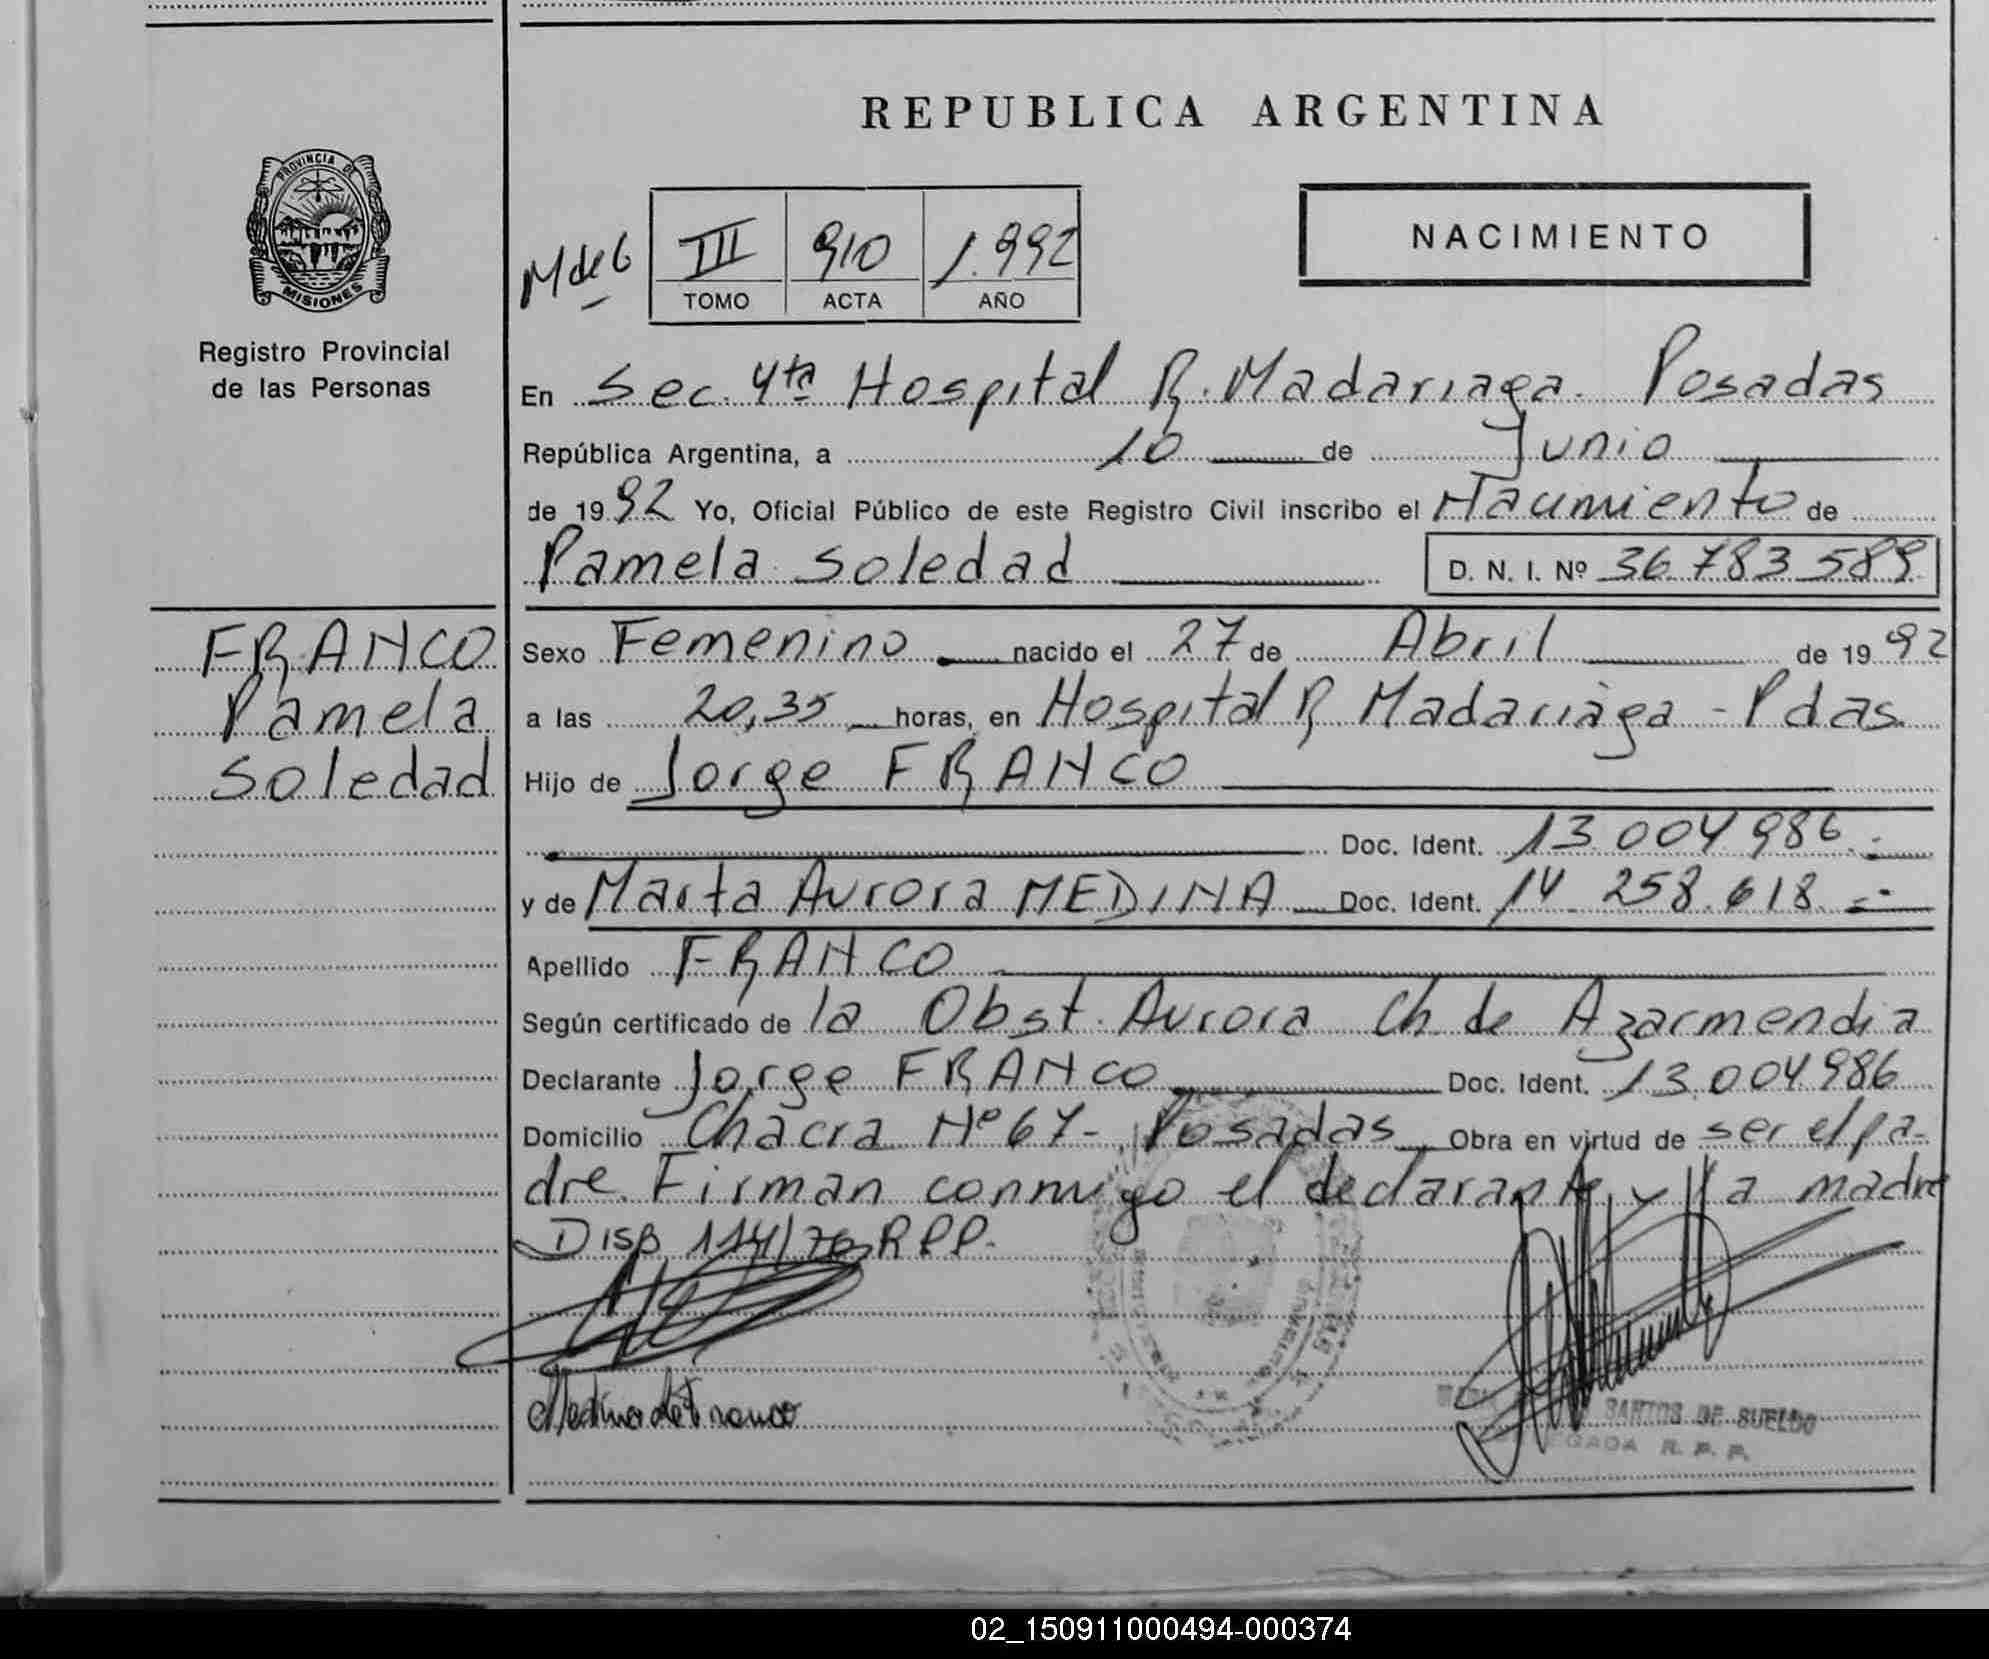 REPUBLICA ARGENTINA
PROVINCIA DE
MISIONES
Registro Provincial
de las Personas
III 910 1.992
TOMO ACTA AÑO
NACIMIENTO
En Sec. 4ta Hospital R. Madariaga. Posadas
República Argentina, a 10 de Junio
de 1992 Yo, Oficial Público de este Registro Civil inscribo el Nacimiento de
Pamela Soledad D. N. I. Nº 36.783.589
FRANCO
Pamela
Soledad
Sexo Femenino nacido el 27 de Abril de 1992
a las 20,35 horas, en Hospital R Madariaga - Pdas.
Hijo de Jorge FRANCO
Doc. Ident. 13.004.986.
y de Marta Aurora MEDINA Doc. Ident. 14.258.618.
Apellido FRANCO
Según certificado de la Obst. Aurora Ch. de Azarmendia
Declarante Jorge FRANCO Doc. Ident. 13.004.986
Domicilio Chacra Nº 67-, Posadas Obra en virtud de ser el pa-
dre. Firman conmigo el declarante y la madre
Disp. 114/76 RPP.
Medina de Franco
SANTOS DE SUELDO
R. P. P.
02_150911000494-000374